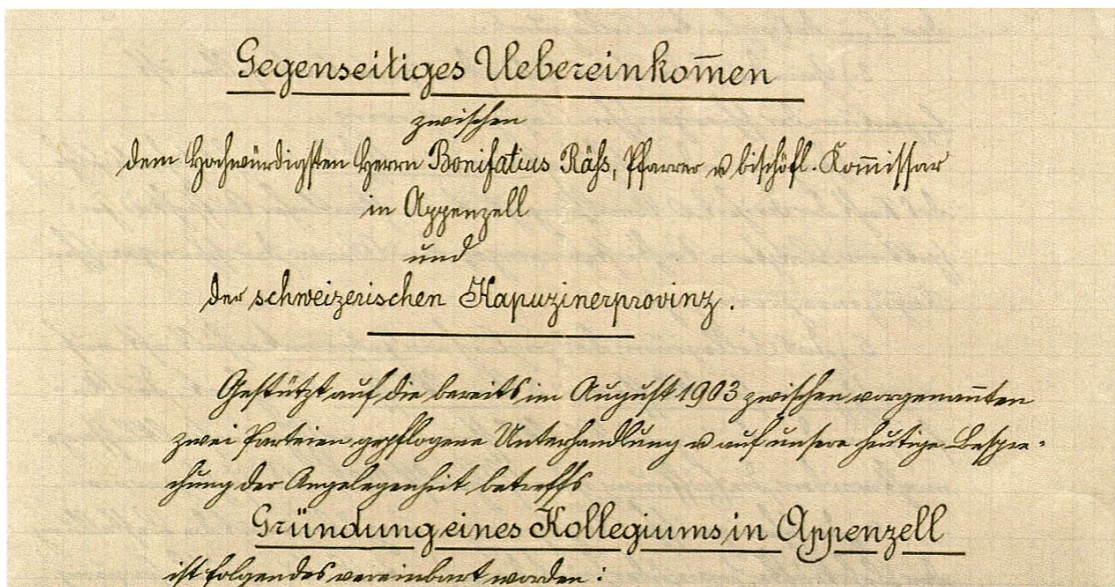 Gegenseitiges Uebereinkom̅en
zwischen
dem Hochwürdigsten Herrn Bonifatius Räß, Pfarrer u bischöfl. Kom̅issar
in Appenzell
und
der schweizerischen Kapuzinerprovinz.
Gestützt auf die bereits im August 1903 zwischen vorgenan̅ten
zwei Parteien gepflogene Unterhandlung u auf unsere heutige Bespre-
chung der Angelegenheit betreffs
Gründung eines Kollegiums in Appenzell
ist folgendes vereinbart worden: